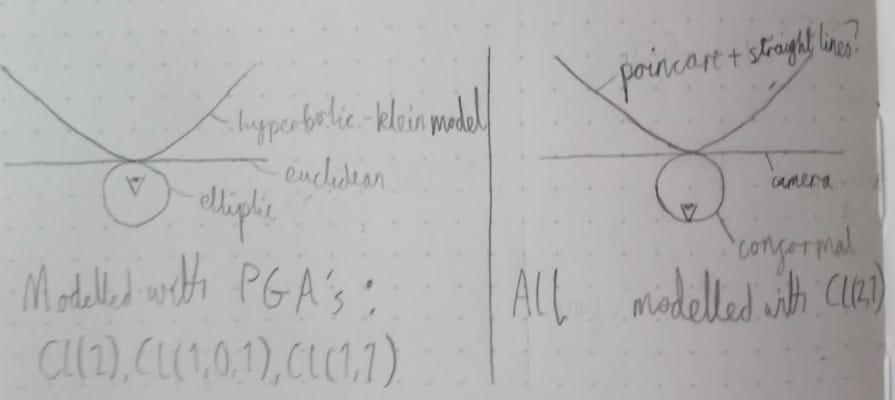 hyperbolic - klein model
euclidean
elliptic
Modelled with PGA's:
Cl(2), Cl(1,0,1), Cl(1,1)
poincare + straight lines?
camera
conformal
All modelled with Cl(2,1)